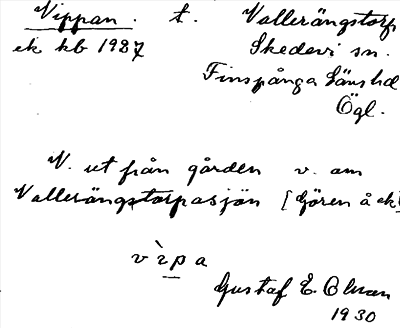 Vippan. t. Vallerängstorp
ek kb 1987 Skedevi sn.
Finspånga läns hd
Ögl.
V. ut från gården v. om
Vallerängstorpasjön [Gören å ek
vìpa
Gustaf E. Olman
1930